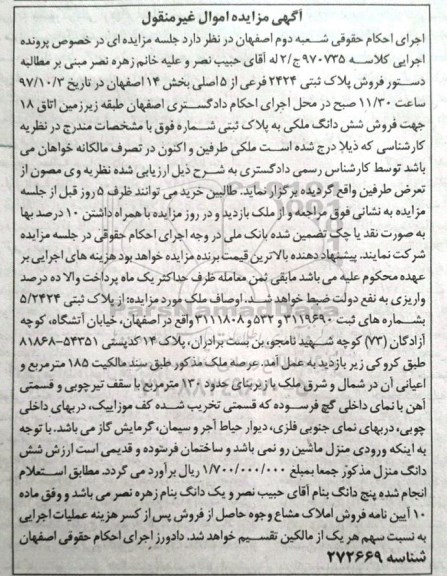 آگهی مزایده اموال غیر منقول
اجرای احکام حقوقی شعبه دوم اصفهان در نظر دارد جلسه مزایده ای در خصوص پرونده
اجرایی کلاسه ۹۷۰۷۳۵ج/۲ له آقای حبیب نصر و علیه خانم زهره نصر مبنی بر مطالبه
دستور فروش پلاک ثبتی ۲۴۲۴ فرعی از ۵ اصلی بخش ۱۴ اصفهان در تاریخ ۹۷/۱۰/۳
ساعت ۱۱/۳۰ صبح در محل اجرای احکام دادگستری اصفهان طبقه زیرزمین اتاق ۱۸
جهت فروش شش دانگ ملکی به پلاک ثبتی شماره فوق با مشخصات مندرج در نظریه
کارشناسی که ذیلاً درج شده است ملکی طرفین و اکنون در تصرف مالکانه خواهان می
باشد توسط کارشناس رسمی دادگستری به شرح ذیل ارزیابی شده نظریه وی مصون از
تعرض طرفین واقع گردیده برگزار نماید. طالبین خرید می توانند ظرف ۵ روز قبل از جلسه
مزایده به نشانی فوق مراجعه و از ملک بازدید و در روز مزایده با همراه داشتن ۱۰ درصد بها
به صورت نقد یا چک تضمین شده بانک ملی در وجه اجرای احکام حقوقی در جلسه مزایده
شرکت نمایند. پیشنهاد دهنده بالاترین قیمت برنده مزایده خواهد بود هزینه های اجرایی بر
عهده محکوم علیه می باشد مابقی ثمن معامله ظرف حداکثر یک ماه پرداخت والا ده درصد
واریزی به نفع دولت ضبط خواهد شد. اوصاف ملک مورد مزایده: از پلاک ثبتی ۵/۲۴۲۴
بشماره های ثبت ۳۱۱۹۶۹۰ و ۵۳۳ و ۳۱۱۸۰۸ واقع در اصفهان، خیابان آتشگاه، کوچه
آزادگان (۷۳) کوچه شهید نامجو، بن بست برادران، پلاک ۱۴ کدپستی ۵۴۳۵۱-۸۱۸۶۸
طبق کروکی زیر بازدید به عمل آمد. عرصه ملک مذکور طبق سند مالکیت ۱۸۵ مترمربع و
اعیانی آن در شمال و شرق ملک با زیربنای حدود ۱۳۰ مترمربع با سقف تیرچوبی و قسمتی
آهن با نمای داخلی گچ فرسوده که قسمتی تخریب شده کف موزاییک، دربهای داخلی
چوبی، دربهای نمای جنوبی فلزی، دیوار حیاط آجر و سیمان، گرمایش گاز می باشد. با توجه
به اینکه ورودی منزل ماشین رو نمی باشد و ساختمان فرسوده و قدیمی است ارزش شش
دانگ منزل مذکور جمعا بمبلغ ۱/۷۰۰/۰۰۰/۰۰۰ ریال برآورد می گردد. مطابق استعلام
انجام شده پنج دانگ بنام آقای حبیب نصر و یک دانگ بنام زهره نصر می باشد و وفق ماده
۱۰ آیین نامه فروش املاک مشاع وجوه حاصل از فروش پس از کسر هزینه عملیات اجرایی
به نسبت سهم هر یک از مالکین تقسیم خواهد شد. دادورز اجرای احکام حقوقی اصفهان
شناسه ۲۷۲۶۶۹